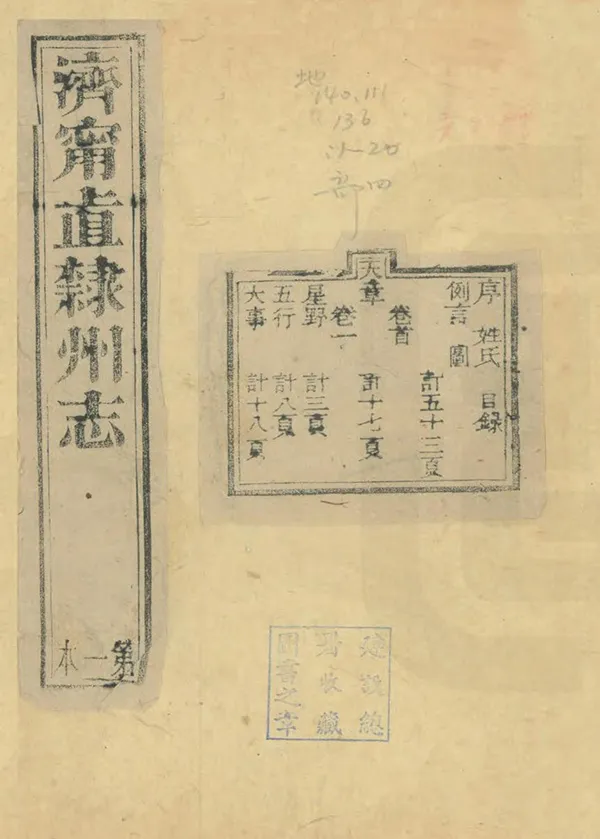 濟甯直隸州志
第一本
地
140.111
136
部四
序 姓氏 目録
例言 圖
計五十三頁
卷首
天章 計十七頁
卷一
星野 計三頁
五行 計八頁
大事 計十八頁
建設總
署收藏
圖書之章